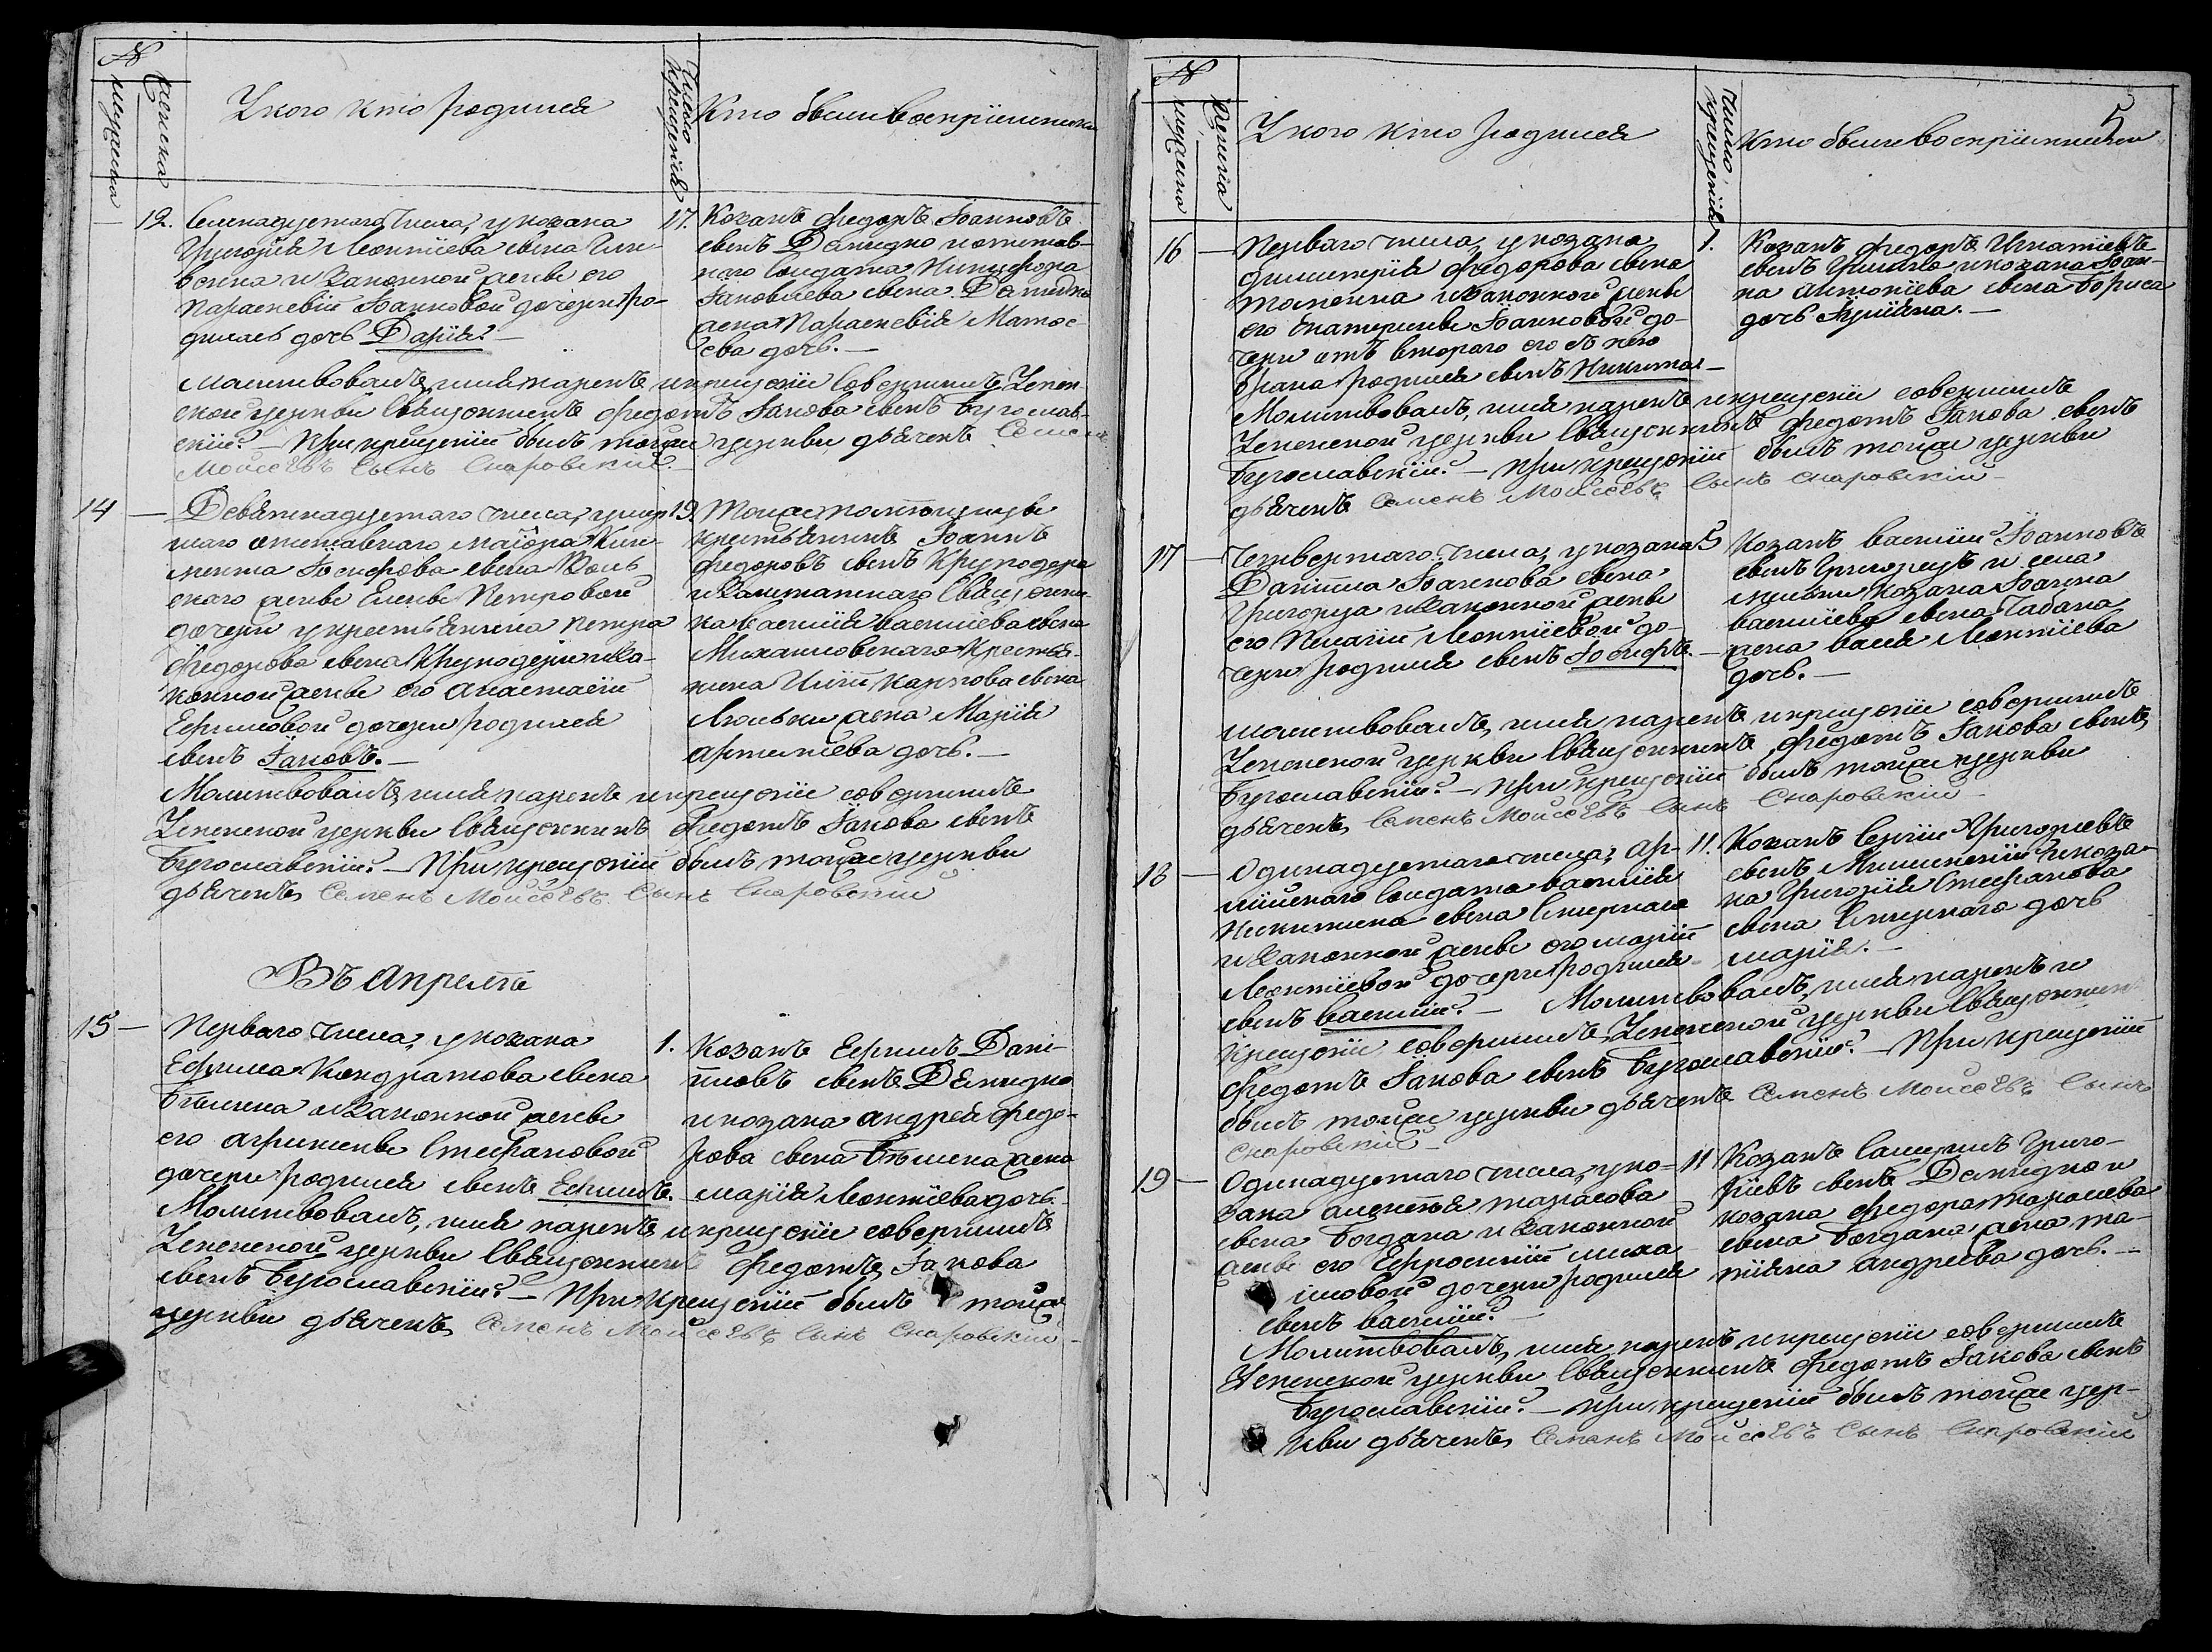 №
мужеска
женска
У кого кто родился
Число крещенія
Кто были воспріемники
12.
Семнадцятого числа, у козака
Григорія Леонтіева сына
и законной жены его
Параскевіи Іоанновой дочери ро-
дилась дочь Дарія. —
17.
Козакъ Федоръ Іоанновъ
сынъ Демидко и отстав-
наго солдата Никифора
Іаковлева сына Демидка
жена Параскевія Матөе-
ева дочь. —
Молитвовалъ, имя нарекъ и крещеніе совершилъ
ской церкви священникъ Федотъ Іакова сынъ Бугославс-
кій. — При крещеніи былъ тойже церкви дьячекъ Семенъ
Моисеевъ сынъ Скаровскій
14 —
Девятнадцятого числа, у умер-
шаго отставнаго маіора Кли-
мента Іосифова сына
скаго жены Елены Петровой
дочери у крестьянина Петра
Федорова сына Круподери и за-
конной жены его Анастасіи
Ефимовой дочери родился
сынъ Іаковъ. —
19.
Тоиже помѣщицы
крестьянинъ Іоаннъ
Федоровъ сынъ Круподера
и священни-
ка Василія Василіева сына
Михайловскаго крестья-
нина Карпова сына
жена Марія
Артеміева дочь. —
Молитвовалъ, имя нарекъ и крещеніе совершилъ
Успенской церкви священникъ Федотъ Іакова сынъ
Бугославскій. — При крещеніи былъ тойже церкви
дьячекъ Семенъ Моисеевъ Сынъ Скаровскій
Въ Апрелѣ
15 —
Перваго числа, у козака
Ефима Кондратова сына
и законной жены
его Агрипины Стефановой
дочери родился сынъ Ефимъ.
1.
Козакъ Ефимъ Дані-
иловъ сынъ Демидко
и козака Андрея Федо-
рова сына жена
Марія Леонтіева дочь.
Молитвовалъ, имя нарекъ и крещеніе совершилъ
Успенской церкви священникъ Федотъ Іакова
сынъ Бугославскій. — При крещеніи былъ тойже
церкви дьячекъ Семенъ Моисеевъ сынъ Скаровскій
5
№
мужеска
женска
У кого кто родился
Число крещенія
Кто были воспріемники
16 —
Перваго числа, у козака
Димитрія Федорова сына
и законной жены
его Екатерины Іоанновой до-
чери отъ втораго его съ нею
брака родился сынъ Никита. —
1.
Козакъ Федоръ Игнатіевъ
сынъ и козака Іоан-
на Антоніева сына Бориса
дочь Іуліяна. —
Молитвовалъ, имя нарекъ и крещеніе совершилъ
Успенской церкви священникъ Федотъ Іакова сынъ
Бугославскій. — При крещеніи былъ тойже церкви
дьячекъ Семенъ Моисеевъ Сынъ Скаровскій
17 —
Четвертаго числа, у козака
Даніила Іоаннова сына
Григорца и законной жены
его Пелагіи Леонтіевой до-
чери родился сынъ Іосифъ. —
5
Козакъ Василій Іоанновъ
сынъ Григорецъ и села
козака Іоанна
Василіева сына Габана
жена Леонтіева
дочь. —
Молитвовалъ, имя нарекъ и крещеніе совершилъ
Успенской церкви священникъ Федотъ Іакова сынъ
Бугославскій. — При крещеніи былъ тойже церкви
дьячекъ Семенъ Моисеевъ Сынъ Скаровскій
18 —
Одинадцятого числа, ар-
мійскаго солдата Василія
Никитина сына
и законной жены его Маріи
Леонтіевой дочери родился
сынъ Василій. —
11.
Козакъ Сергій Григоріевъ
сынъ и коза-
ка Григорія Стефанова
сына дочь
Марія. —
Молитвовалъ, имя нарекъ и
крещеніе совершилъ Успенской церкви священникъ
Федотъ Іакова сынъ Бугославскій. — При крещеніи
былъ тойже церкви дьячекъ Семенъ Моисеевъ Сынъ
Скаровскій
19 —
Одинадцятого числа, у ко-
зака Алексѣя Тарасова
сына Богдана и законной
жены его Ефросиніи Миха
иловой дочери родился
сынъ Василій. —
11
Козакъ Григо-
ріевъ сынъ Демидко и
козака Федора
сына Богдана жена Та-
тіяна Андреева дочь. —
Молитвовалъ, имя нарекъ и крещеніе совершилъ
Успенской церкви священникъ Федотъ Іакова сынъ
Бугославскій. — При крещеніи былъ тойже цер-
кви дьячекъ Семенъ Моисеевъ Сынъ Скаровскій